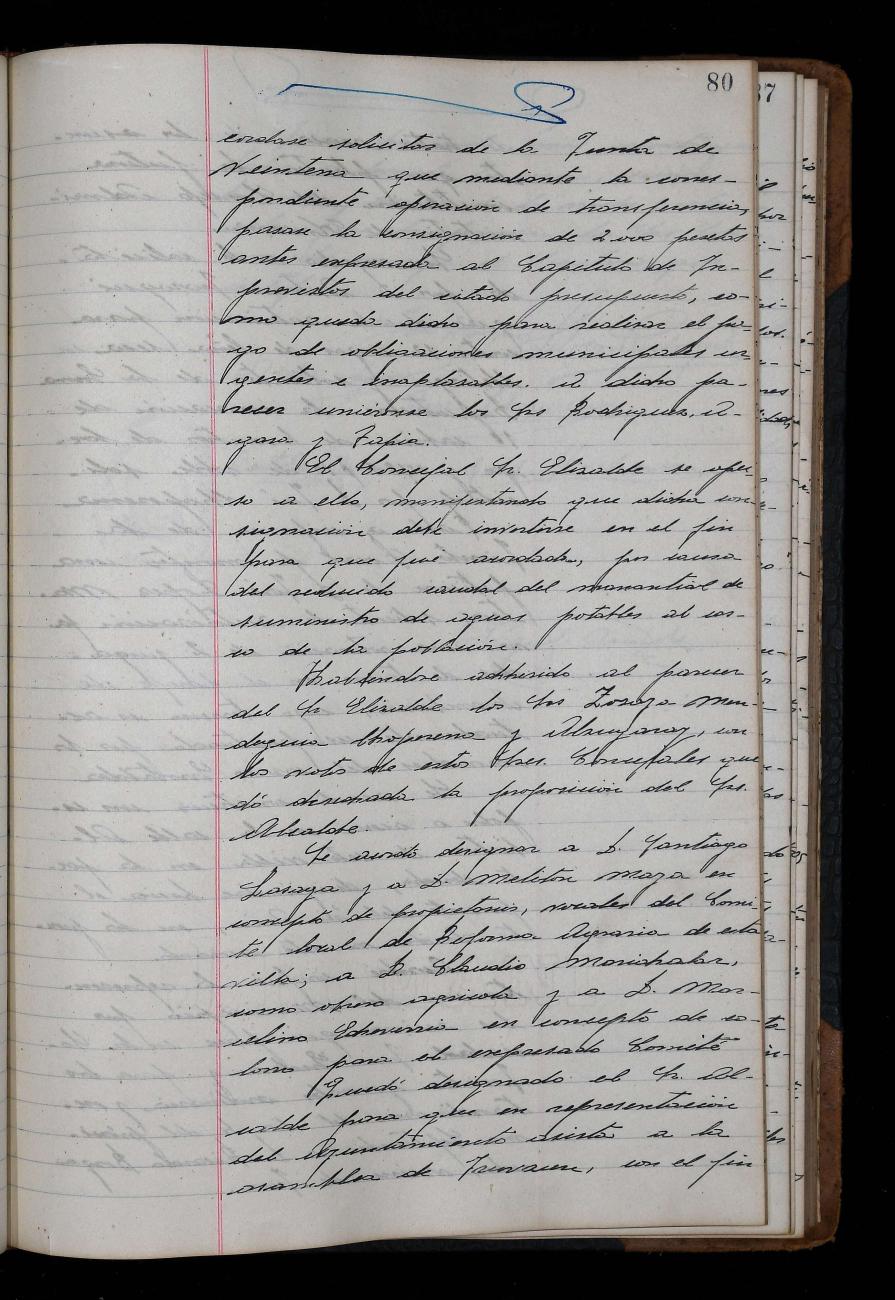 80
cordase solicitar de la Junta de
Veintena que mediante la corres-
pondiente operación de transferencia,
pasase la consignación de 2000 pesetas
antes expresada al Capitulo de Im-
previstos del citado presupuesto, co-
mo queda dicho para realizar el pa-
go de obligaciones municipales ur-
gentes e inaplazables. A dicho pa-
recer unieronse los Srs Rodriguez, A-
y Tapia.
El Concejal Sr. Elizalde se opu-
so a ello, manifestando que dicha con-
signacion debe invertirse en el fin
para que fué acordada, por causa
del reducido caudal del manantial de
suministro de aguas potables al cas-
co de la población.
Habiendose adherido al parecer
del Sr Elizalde los Srs Zozaya Men-
deguia Choperena y Almyaraz, con
los voto de estos Sres. Concejales que-
dó desechada la proposición del Sr.
Alcalde.
Se acordó designar a D. Santiago
Lasaga y a D. Meliton Maya en
concepto de propietarios, vocales del Comi-
te local de Reforma Agraria de esta
villa; a D. Claudio Marichalar,
como obrero agricola y a D. Mar-
celino Echeverria en concepto de co-
lono para el expresado Comité
Quedó designado el Sr. Al-
calde para que en representación
del Ayuntamiento asista a la
asamblea de, con el fin